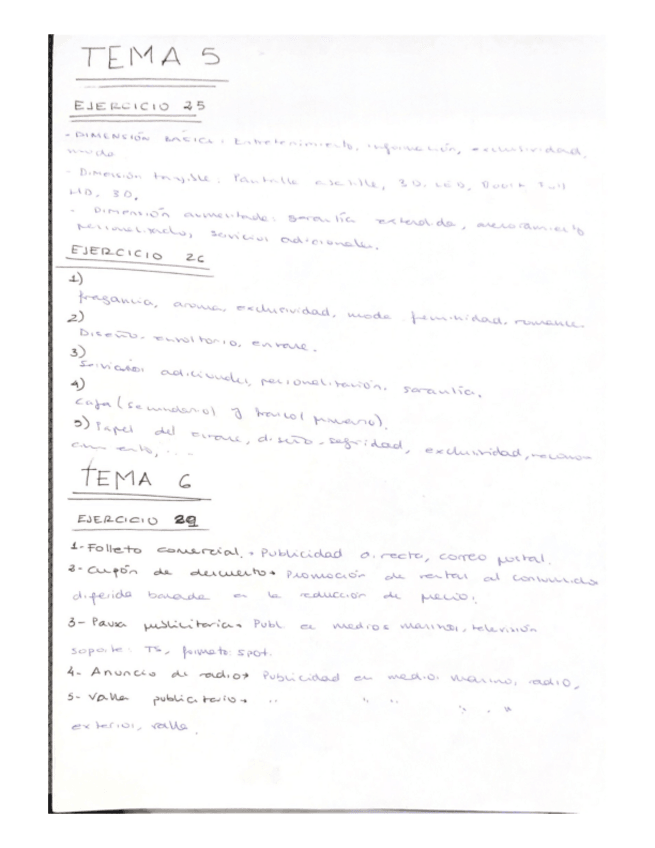 TEMA 5
EJERCICIO 25
- DIMENSIÓN BÁSICA: Entretenimiento, información, exclusividad,
- Dimensión tangible: Pantalla 3D, LED,
3D,
- Dimensión aumentada: garantía extendida, asesoramiento
personalizado, servicios adicionales.
EJERCICIO 26
1)
fragancia, aroma, exclusividad, moda, feminidad, romance.
2)
Diseño, envoltorio, envase.
3)
Servicios adicionales, personalización, garantía.
4)
Caja (secundario) y frasco (primario).
5) Papel del envase, diseño, seguridad, exclusividad,
TEMA 6
EJERCICIO 29
1- Folleto comercial → Publicidad directa, correo postal.
2- Cupón de descuento → Promoción de ventas al consumidor
diferida basada en la reducción de precio.
3- Pausa publicitaria → Publ en medios masivos, televisión
soporte: T5, formato: spot.
4- Anuncio de radio → Publicidad en medio masivo, radio,
5- Valla publicitaria → " " " " "
exterior, valla.